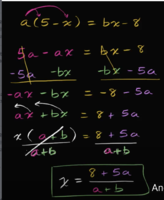 a(5-x) = bx-8
5a - ax = bx - 8
-5a -bx -bx -5a
-ax - bx = -8 - 5a
ax + bx = 8 + 5a
x(a+b) = 8 + 5a
a+b a+b
x = 8 + 5a
a + b
An